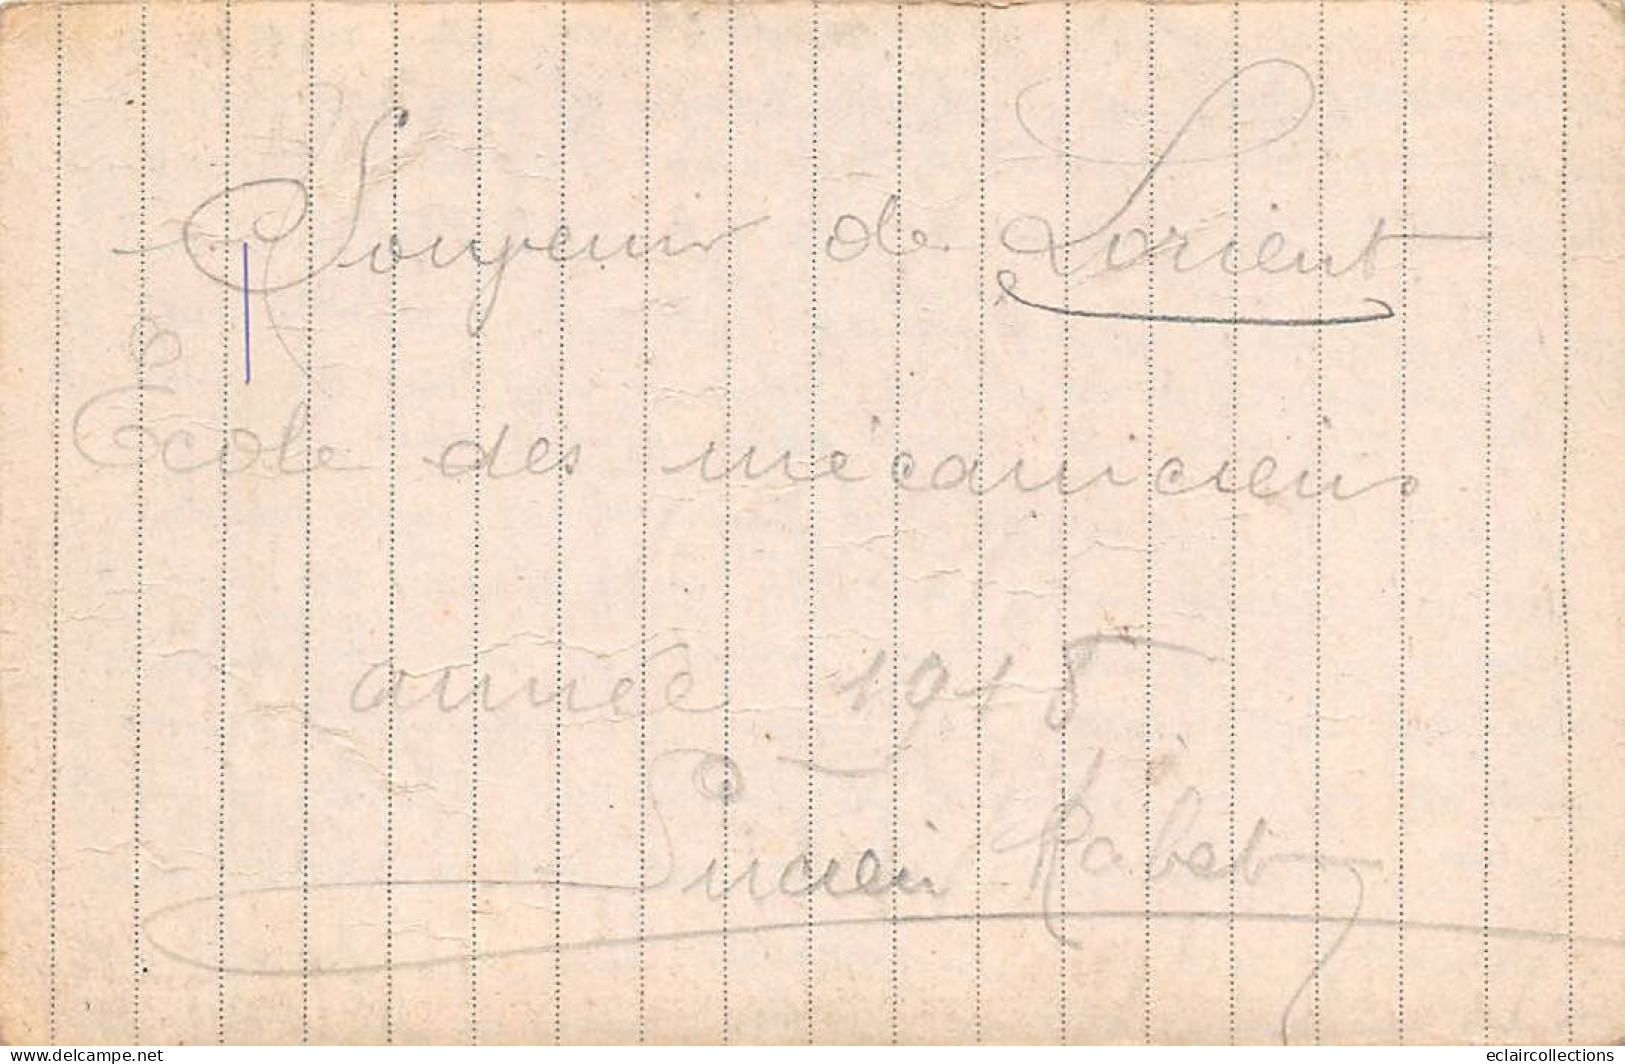 Souvenir de Lorient
École des mécaniciens
année 1918
Lucien Rabet
delcampe.net
eclaircollections